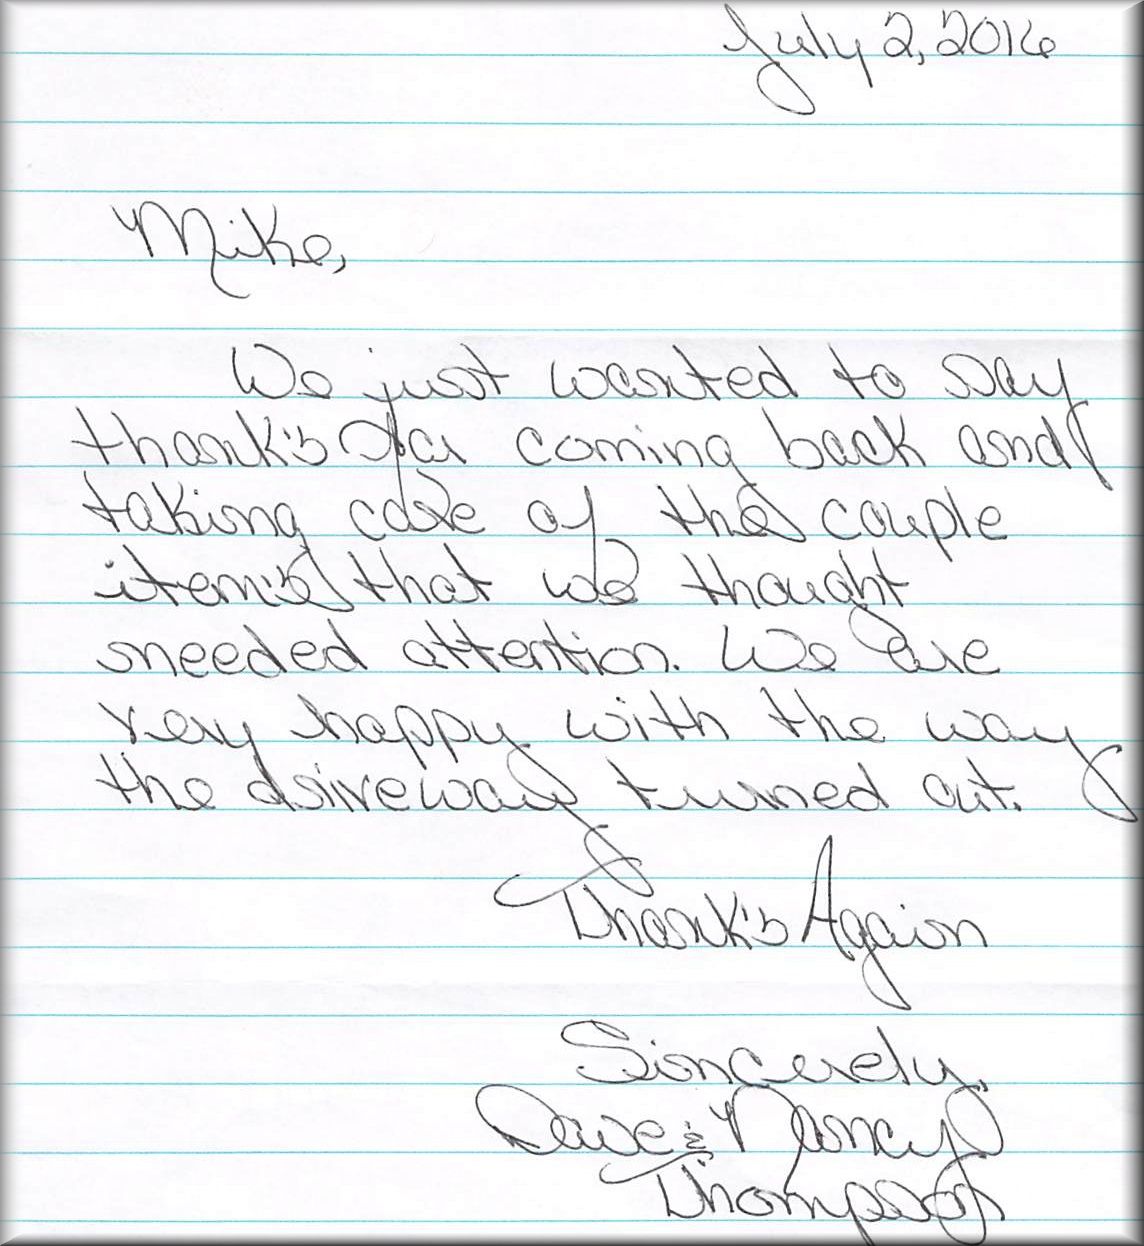 July 2, 2016
Mike,
We just wanted to say
thank's for coming back and
taking care of the couple
item's that we thought
needed attention. We are
very happy with the way
the driveway turned out.
Thank's Again
Sincerely,
Dave & Nancy
Thompson